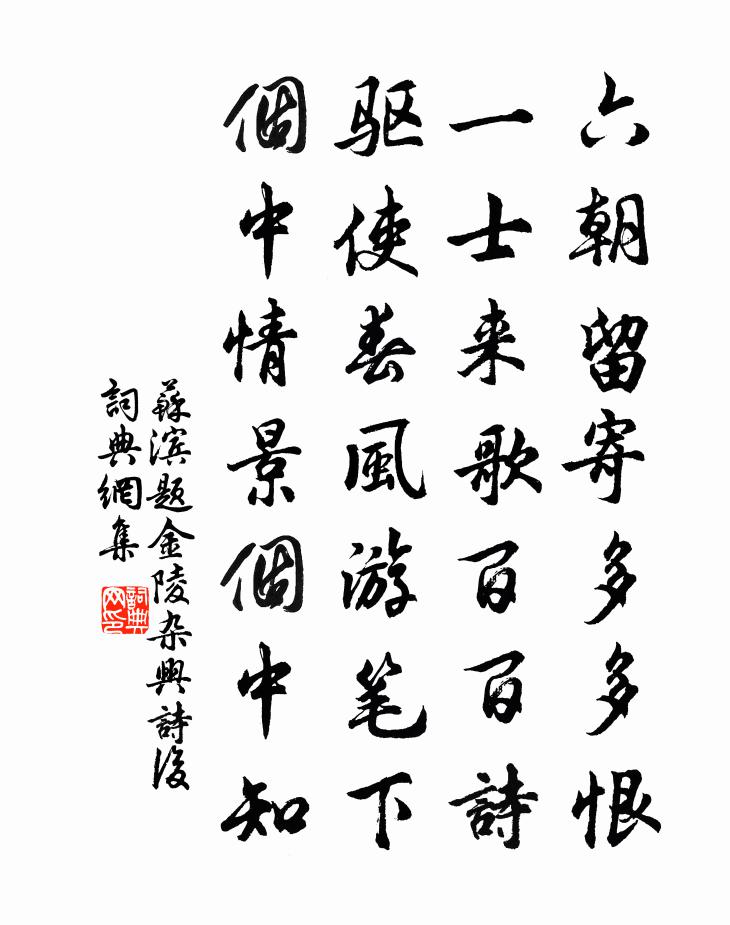 六朝留寄多多恨
一士来歌百百詩
驱使春風游笔下
個中情景個中知
蘇滨题金陵杂興詩後
詞典網集
詞典
网印